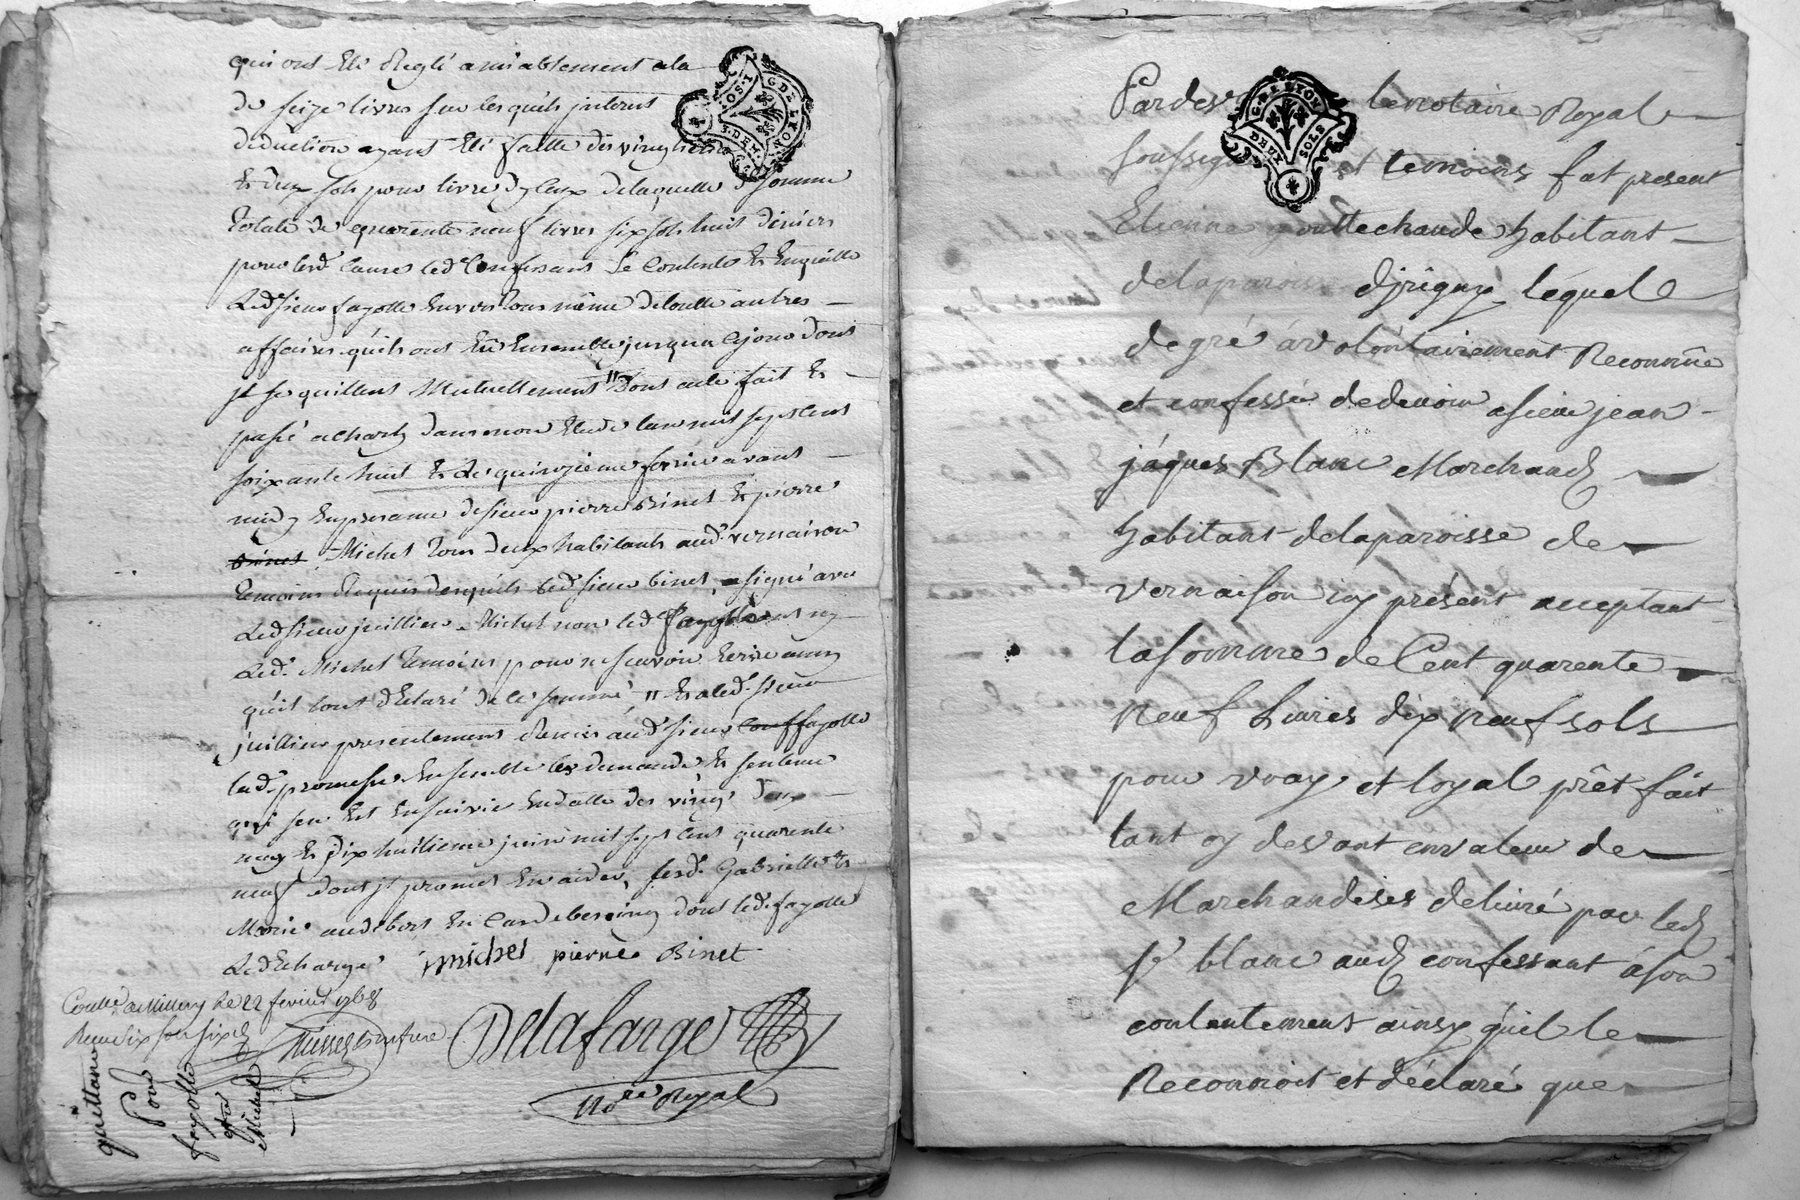 qui ont Eté Reglé amiablement ala
de seize livres sur lesquels interest
deduction ayant Eté faitte des vingtieme
Et deux sols pour livre d'yceux delaquelle somme
totale de quarente neuf livres six sols huit deniers
pour lesd. causes led. Confessant Se Contente Et Enquitte
Led. sieur fayolle Envers tous même detoutte autres
affaires quils ont Eüe Ensemble jusqua cejour dont
il se quittent Mutuellement " Dont acte fait Et
passé acharly dans mon Etude lan mil sept cens
soixante huit Et Le quinzieme fevrier avant
midy En presence de sieur pierre Binet Et pierre
Binet Michel tous deux habitants aud. vernaison
temoins Requis desquels led. sieur binet, a signé avec
Led. sieur juillien Michel non led. fayolle ny
Led. Michel temoins pour ne scavoir Ecrire
qu'il tout d'Eclaré de ce sommé, " Et a led. sieur
juillien presentement Remis aud. sieur fayolle
lad. promesse Ensemble les demande Et sentence
qui sen Est Ensuivie En datte des vingt deux
may Et dix huitieme juin mil sept cens quarente
neuf dont il promet En aider, sesd. Gabrielle Et
Marie audebort En cas de besoing dont led. fayolle
Led. Echarge michel pierre Binet
Contlé. a Millery Le 22 fevrier 1768
Reçu dix sols six d.
Delafarge
No.re Royal
quittance
Pour
fayolle
Michel
G. DE LYON
Pardev le notaire Royal
soussigné et temoins fut present
Etienne gouttechaude habitant
de laparoisse d'jrigny lequel
de gré à volontairement Reconnüe
et confessé dedevoir a sieur jean
jáques Blanc Marchand
habitant delaparoisse de
vernaison icy présent acceptant
la somme de Cent quarente
neuf Livres dix neuf sols
pour vray et loyal prêt fait
tant cy devant en valeur de
Marchandises delivré par led
sr. blanc aud confessant àson
contentement ainsy qu'il le
Reconnoit et déclaré que
G. DE LYON
DEUX SOLS